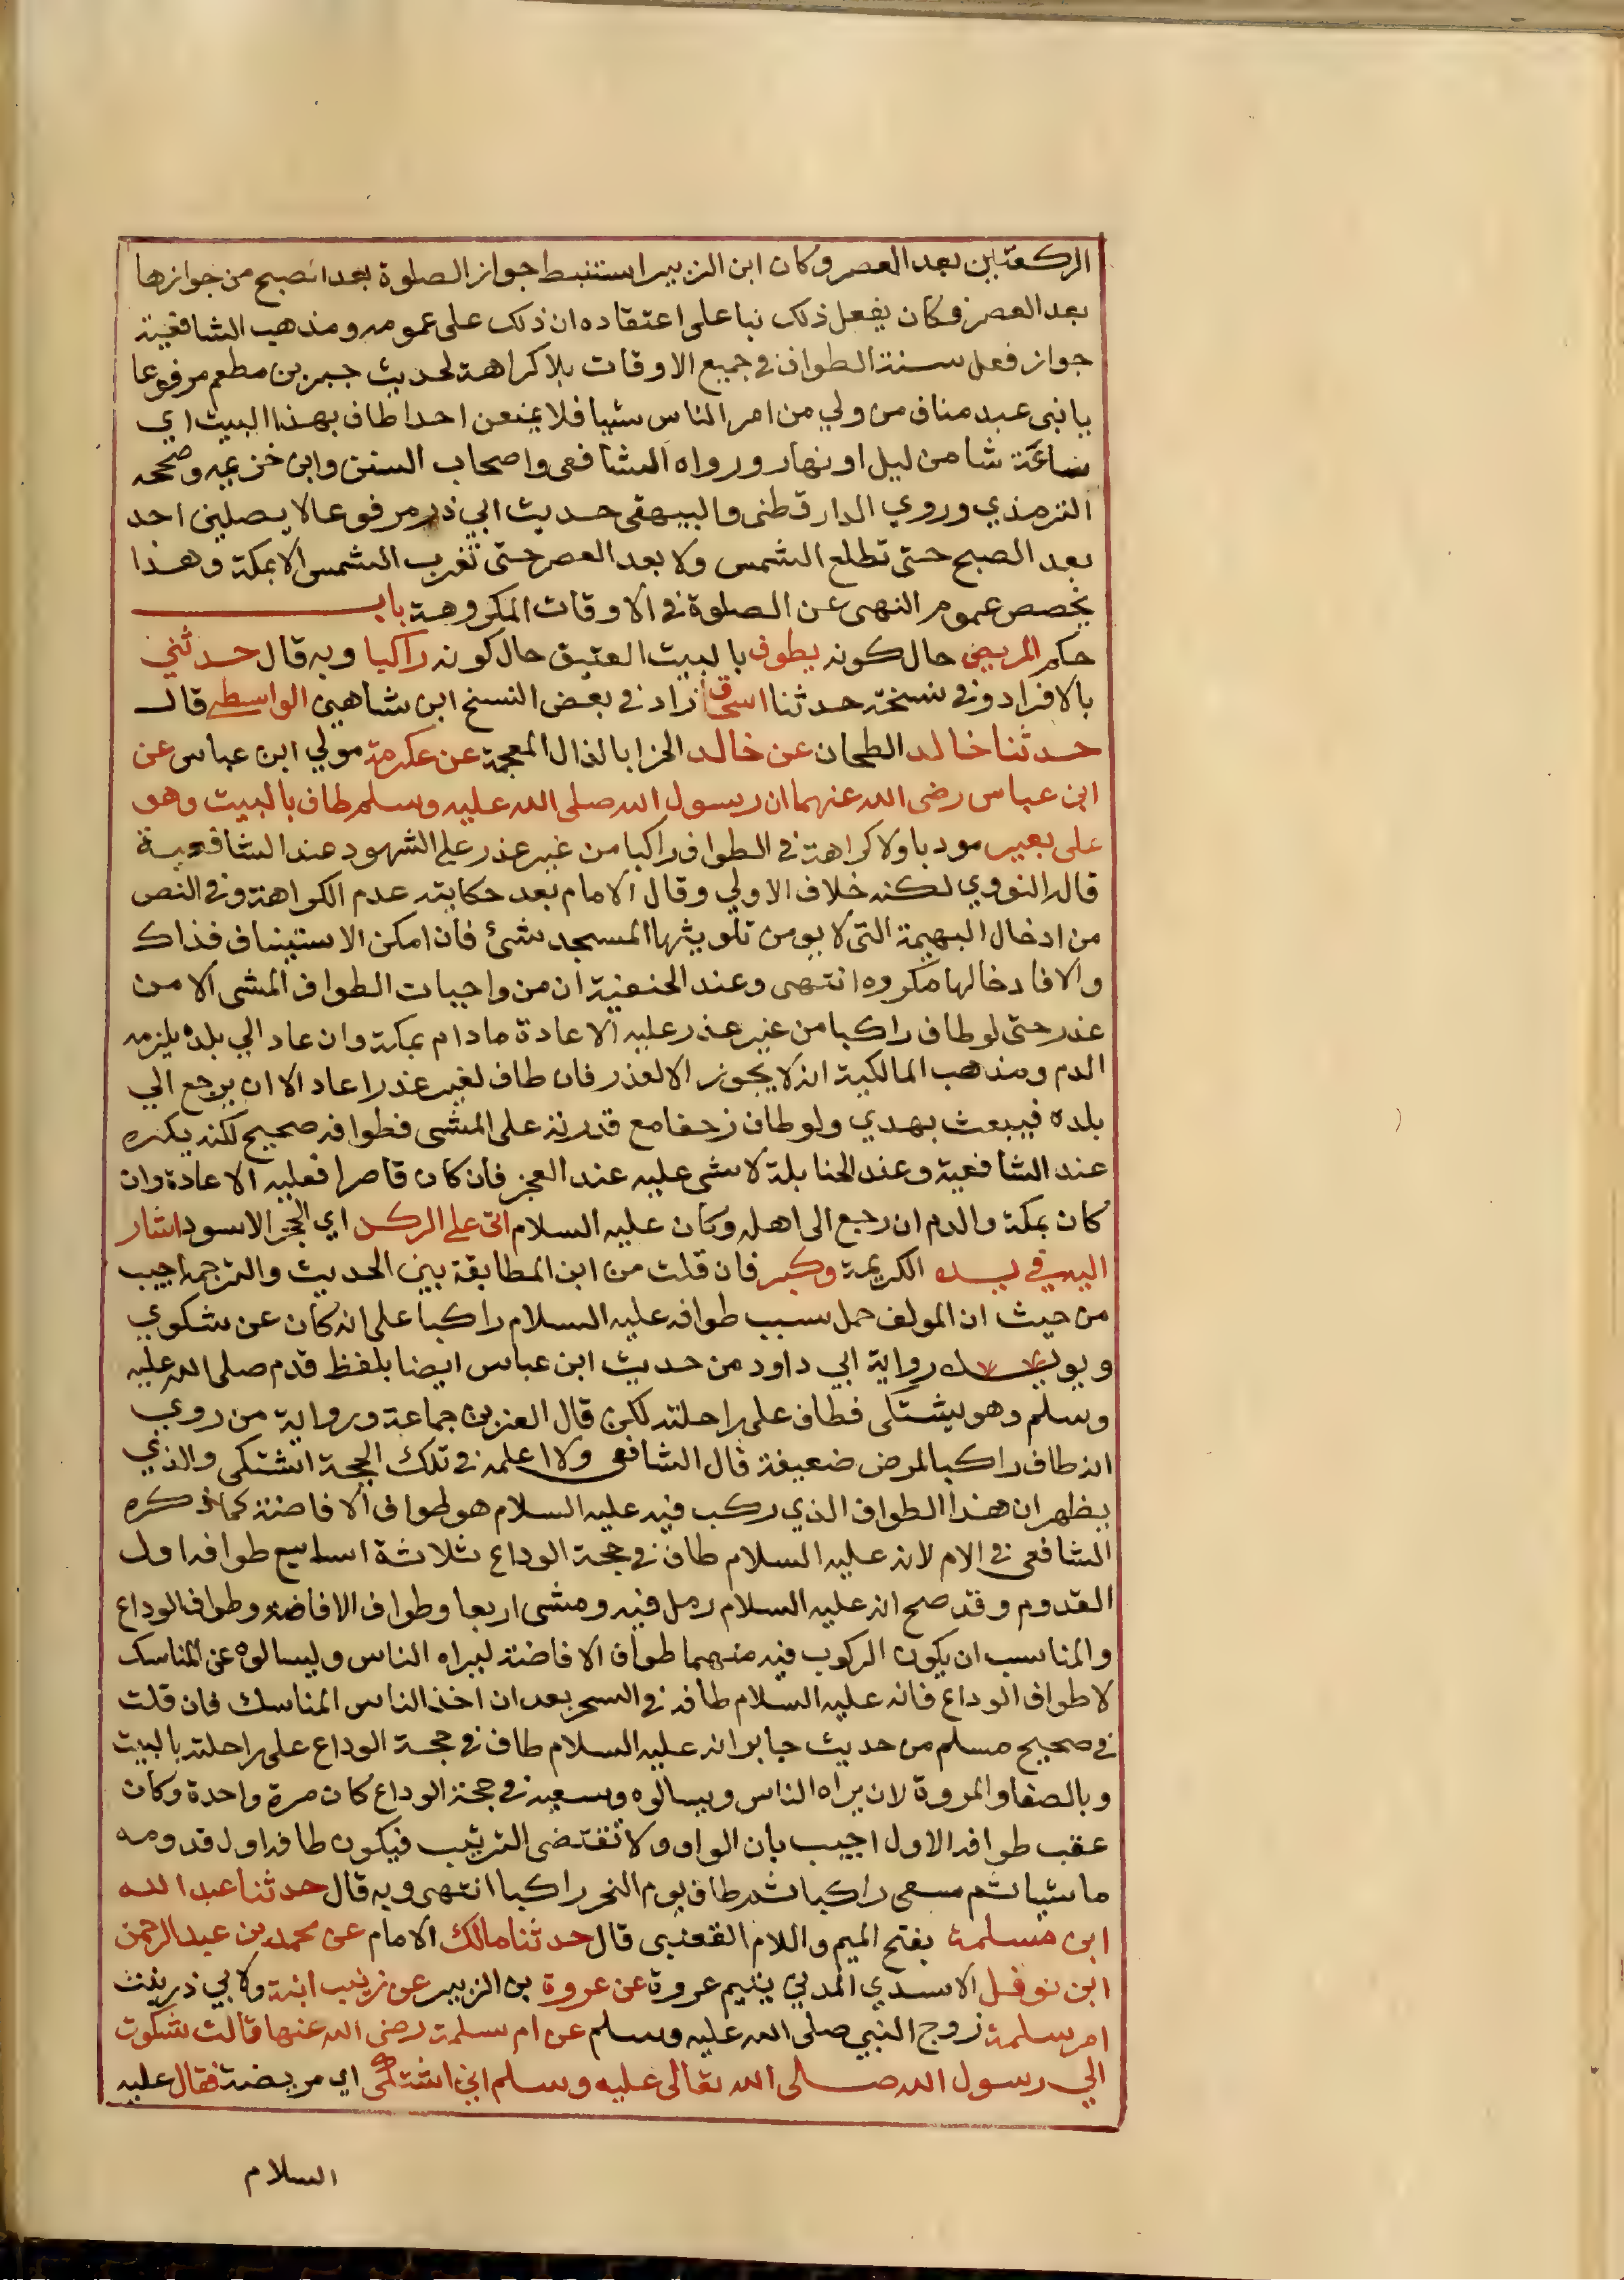 الركعتين بعد العصر وكان ابن الزبير استنبط جواز الصلوة بعد الصبح من جوازها
بعد العصر فكان يفعل ذلك بنا على اعتقاده ان ذلك على عمومه ومذهب الشافعية
جواز فعل سنة الطواف في جميع الاوقات بلا كراهة لحديث جبير بن مطعم مرفوعا
يا بني عبد مناف من ولي من امر الناس شيا فلا يمنعن احدا طاف بهذا البيت اي
ساعة شا من ليل او نهار ورواه الشافعى واصحاب السنن وابن خزيمه وصححه
الترمذي وروي الدارقطنى والبيهقى حديث ابي ذر مرفوعا لا يصلين احد
بعد الصبح حتى تطلع الشمس ولا بعد العصر حتى تغرب الشمس الا بمكة وهذا
يخصص عموم النهى عن الصلوة في الاوقات المكروهة باب
حكم المريض حال كونه يطوف بالبيت العتيق حال كونه راكبا وبه قال حدثني
بالافراد وفي نسخة حدثنا اسحق زاد في بعض النسخ ابن شاهين الواسطي قال
حدثنا خالد الطحان عن خالد الحزا بالذال المعجمة عن عكرمة مولي ابن عباس عن
ابن عباس رضى الله عنهما ان رسول الله صلى الله عليه وسلم طاف بالبيت وهو
على بعير مودبا ولا كراهة في الطواف راكبا من غير عذر علي الشهود عند الشافعيية
قاله النووي لكنه خلاف الاولي وقال الامام بعد حكايته عدم الكراهة وفي النص
من ادخال البهيمة التى لا يومن تلويثها المسجد شئ فان امكن الاستيناف فذاك
والا فادخالها مكروه انتهى وعند الحنفية ان من واجبات الطواف المشى الا من
عذر حتى لو طاف راكبا من غير عذر عليه الاعادة مادام بمكة وان عاد الي بلده يلزمه
الدم ومذهب المالكية انه لا يجوز الا لعذر فان طاف لغير عذر اعاد الا ان يرجع الي
بلده فيبعث بهدي ولو طاف زحفا مع قدرته على المشى فطوافه صحيح لكنه يكره
عند الشافعية وعند الحنابلة لا شى عليه عند العجز فان كان قاصرا فعليه الاعادة وان
كان بمكة والدم ان رجع الى اهله وكان عليه السلام اتى علي الركن اي الحجر الاسود اشار
اليه في يده الكريمة وكبر فان قلت من اين المطابقة بين الحديث والترجمة اجيب
من حيث ان المولف حمل سبب طوافه عليه السلام راكبا على انه كان عن شكوي
ويويده رواية ابي داود من حديث ابن عباس ايضا بلفظ قدم صلى الله عليه
وسلم وهو يشتكى فطاف على راحلته لكن قال العز بن جماعة ورواية من روي
انه طاف راكبا لمرض ضعيفة قال الشافعى ولا اعلمه في تلك الحجة اشتكى والذي
يظهر ان هذا الطواف الذي ركب فيه عليه السلام هو طواف الافاضة كما ذكره
الشافعى في الام لانه عليه السلام طاف في حجة الوداع ثلاثة اسابيع طوافه اول
القدوم وقد صح انه عليه السلام رمل فيه ومشى اربعا وطواف الافاضة وطواف الوداع
والمناسب ان يكون الركوب فيه منهما طواف الافاضة ليراه الناس وليسالوه عن المناسك
لا طواف الوداع فانه عليه السلام طافه في السحر بعد ان اخذ الناس المناسك فان قلت
في صحيح مسلم من حديث جابر انه عليه السلام طاف في حجة الوداع على راحلته بالبيت
وبالصفا والمروة لان يراه الناس ويسالوه وسعيه في حجة الوداع كان مرة واحدة وكان
عقب طوافه الاول اجيب بان الواو ولا تقتضى الترتيب فيكون طافه اول قدومه
ماشيا ثم سعى راكبا ثم طاف يوم النحر راكبا انتهى وبه قال حدثنا عبد الله
ابن مسلمة بفتح الميم واللام القعنبى قال حدثنا مالك الامام عن محمد بن عبد الرحمن
ابن نوفل الاسدي المدني يتيم عروة عن عروة بن الزبير عن زينب ابنة ولابي ذر بنت
ام سلمة زوج النبي صلى الله عليه وسلم عن ام سلمة رضى الله عنها قالت شكوت
الي رسول الله صلى الله تعالى عليه وسلم اني اشتكى اي مريضة فقال عليه
السلام